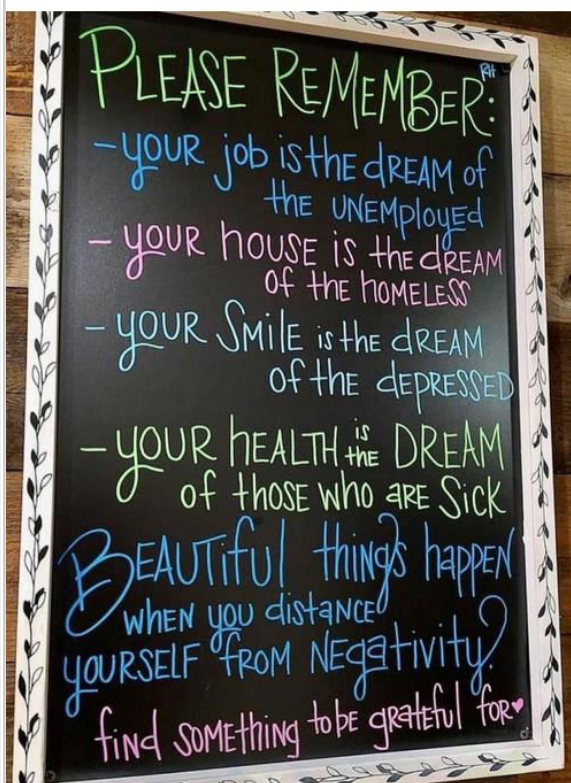 PLEASE REMEMBER:
RH
-YOUR job is the dREAM of
the UNEMployed
- YOUR hOUSE is the dREAM
of the hOMELESS
- YOUR SMilE is the dREAM
of the dEPRESSED
- YOUR hEALTH is the DREAM
of those who aRE Sick
BEAUTiful things happen
when you distance
YOURSELF FROM NEgativity?
find SOMEthing to be gratEful for♥